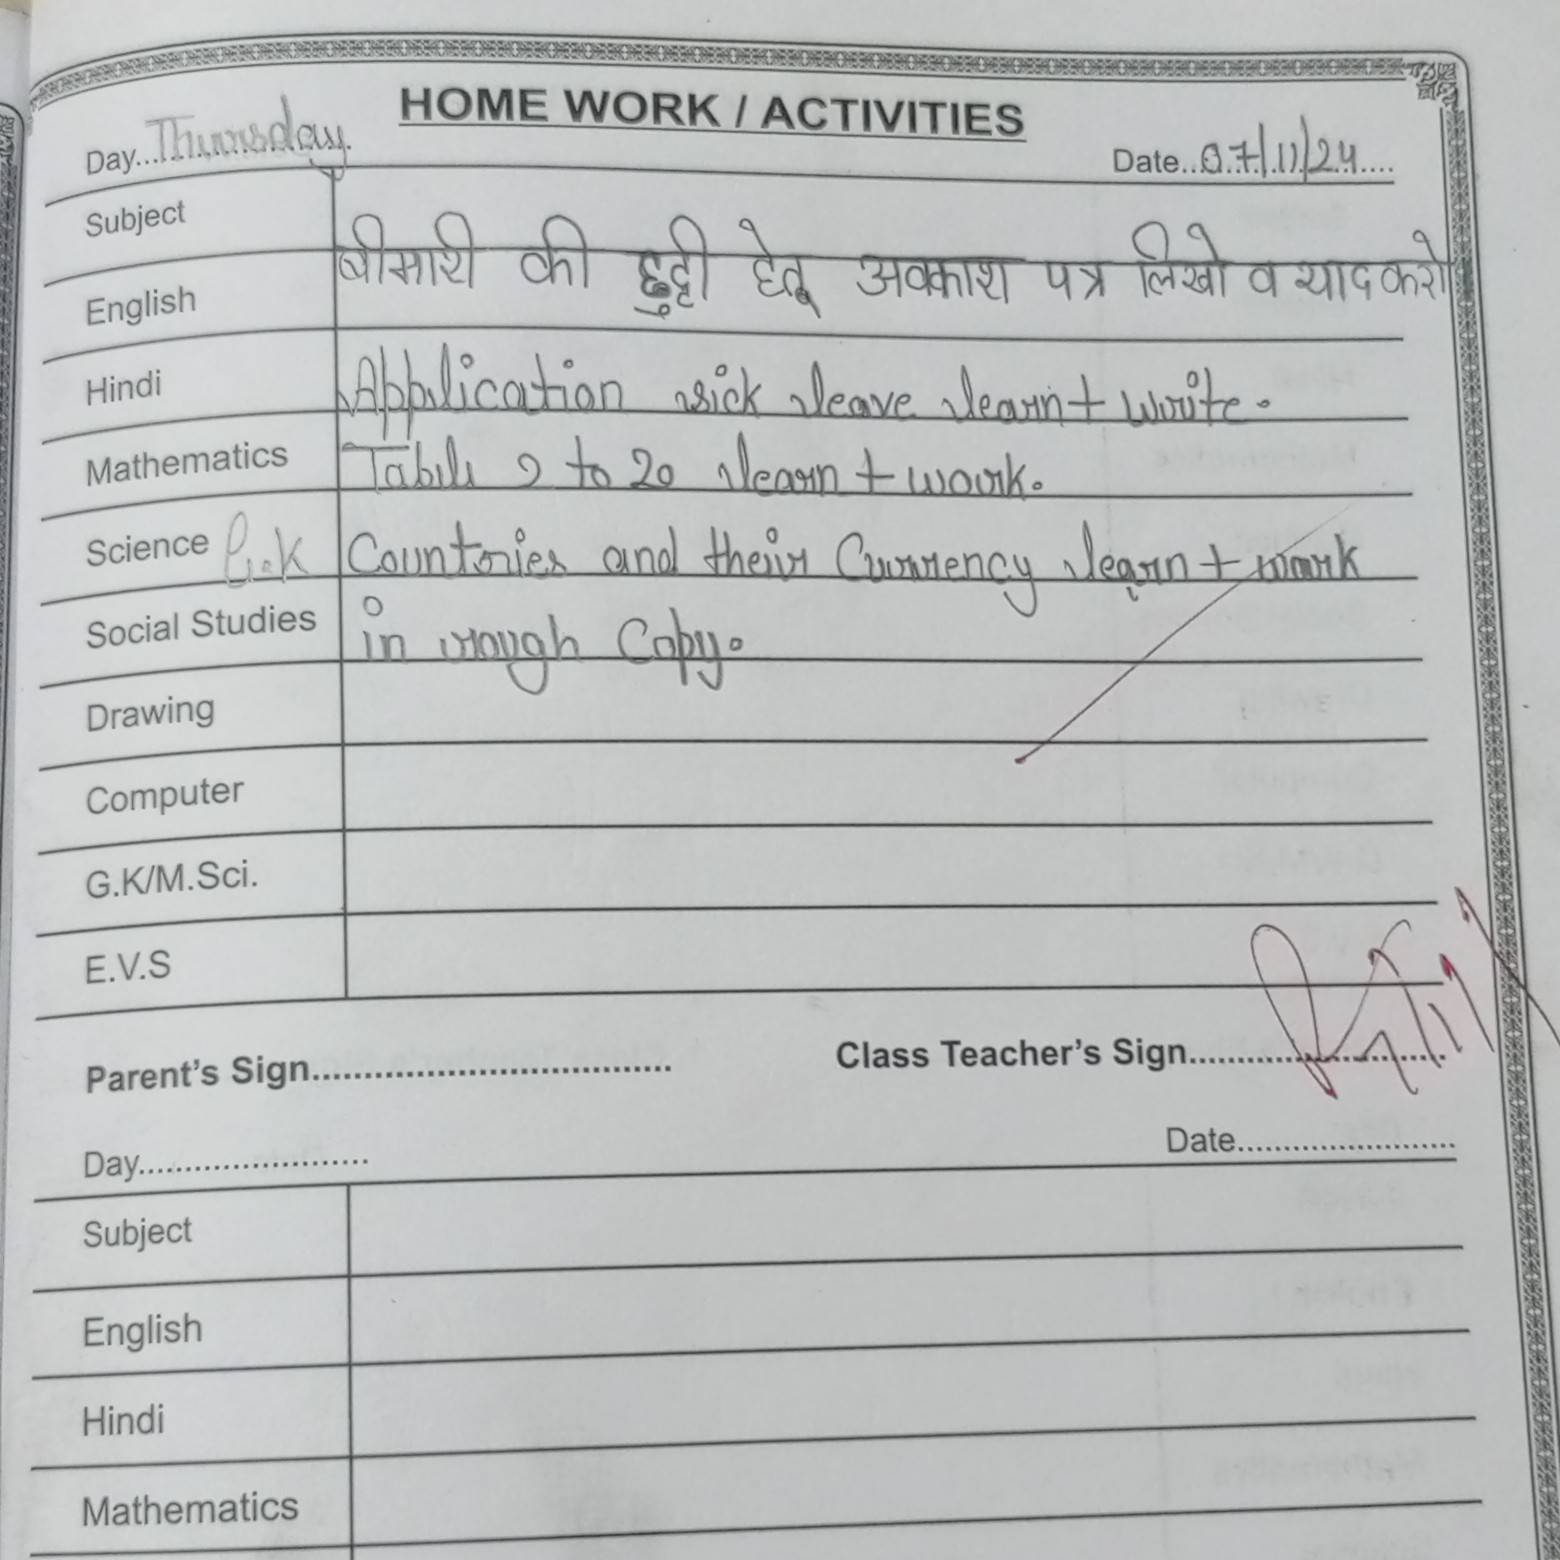 HOME WORK / ACTIVITIES
Day...Thursday.
Date..07/11/24....
Subject
English बीमारी की छुट्टी हेतू अवकाश पत्र लिखो व याद करो
Hindi Application sick leave learn + write.
Mathematics Table 2 to 20 learn + work.
Science G.K Countries and their Currency learn + work
Social Studies in rough Copy.
Drawing
Computer
G.K/M.Sci.
E.V.S
Parent's Sign....................................
Class Teacher's Sign..........................
Day.......................
Date......................
Subject
English
Hindi
Mathematics